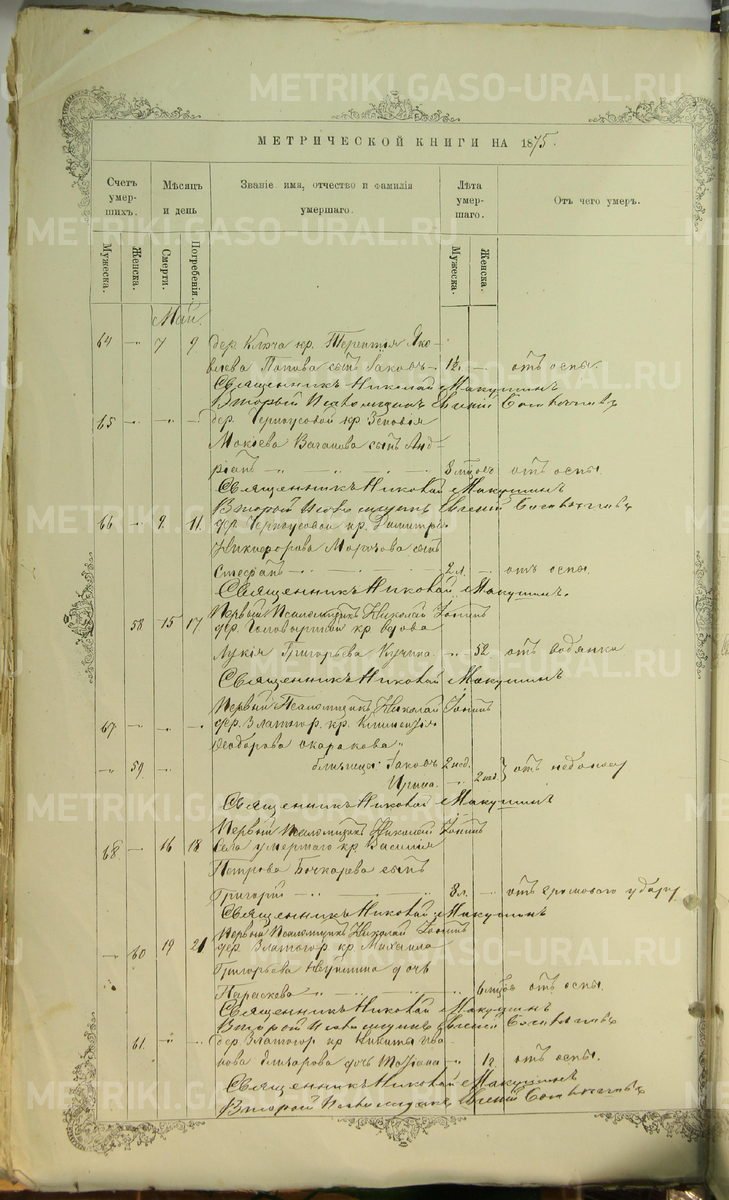 METRIKI.GASO-URAL.RU
МЕТРИЧЕСКОЙ КНИГИ НА 1875.
Счетъ умерших. Мѣсяцъ и день Званіе, имя, отчество и фамилія умершаго. Лѣта умершаго. Отъ чего умеръ.
Мужеска. Женска. Смерти. Погребенія. Мужеска. Женска.
Май.
64 — 7 9 дер. Ключа кр. Терентія Яко-
влева Попова сынъ Іаковъ — 1½ — отъ оспы.
Священникъ Николай Макушинъ
Вторый Псаломщикъ Евгеній
65 — „ — дер. Черноусовой кр. Зеновія
Мокіева Ваганева сынъ Анд-
ріанъ — „ — „ — 8 мѣсяц. отъ оспы
Священникъ Николай Макушинъ
Второй Псаломщикъ Евгеній
66 — 9 11 дер. Черноусовой кр. Димитрія
Никифорова сынъ
Стефанъ — 2 л. — отъ оспы.
Священникъ Николай Макушинъ.
Первый Псаломщикъ Николай
58 — 15 17 дер. кр. вдова
Лукія Григорьева Кучина „ 52 отъ водянки
Священникъ Николай Макушинъ
Первый Псаломщикъ Николай
67 — „ — дер. Златогор. кр. Климентія
Ѳеодорова Скаракова
„ 59 — близнецы: Іаковъ 2 нед.
Ирина. — 2 нед. } отъ
Священникъ Николай Макушинъ
Первый Псаломщикъ Николай
68 — 16 18 села умершаго кр. Василія
Петрова Бочкарева сынъ
Григорій — 8 л. — отъ громоваго удара
Священникъ Николай Макушинъ
Первый Псаломщикъ Николай
— 60 19 21 дер. Златогор. кр. Михаила
Григорьева дочь
Параскева „ 6 мѣсяц. отъ оспы.
Священникъ Николай Макушинъ
Второй Псаломщикъ Евгеній
61 „ — дер. Златогор. кр. Никиты Ива-
нова дочь Татіана — 1 г. отъ оспы.
Священникъ Николай Макушинъ
Второй Псаломщикъ Евгеній